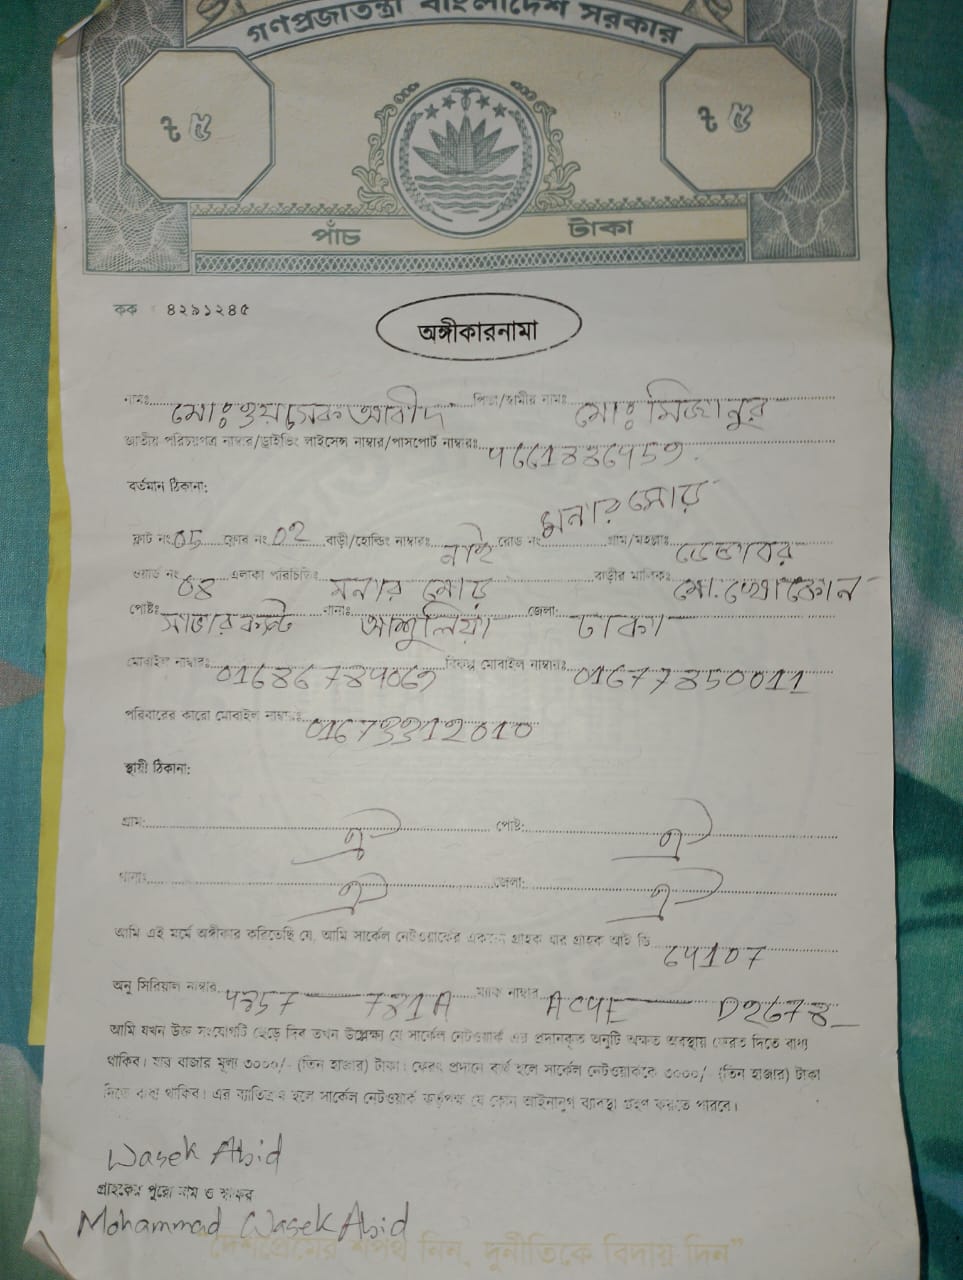 গণপ্রজাতন্ত্রী বাংলাদেশ সরকার
৳ ৫ ৳ ৫
পাঁচ টাকা
কক ৪২৯১২৪৫
অঙ্গীকারনামা
নামঃ মোঃ ওয়াসেক আবীদ পিতা/স্বামীর নামঃ মোঃ মিজানুর
জাতীয় পরিচয়পত্র নাম্বার/ড্রাইভিং লাইসেন্স নাম্বার/পাসপোর্ট নাম্বারঃ
বর্তমান ঠিকানা:
ফ্লাট নং 05 ফ্লোর নং 02 বাড়ী/হোল্ডিং নাম্বারঃ নাই রোড নং মনার মোড় গ্রাম/মহল্লাঃ ডেন্ডাবর
ওয়ার্ড নং 04 এলাকা পরিচিতিঃ মনার মোড় বাড়ীর মালিকঃ মো. খোকোন
পোষ্টঃ সাভার ক্যান্ট থানাঃ আশুলিয়া জেলা: ঢাকা
মোবাইল নাম্বারঃ বিকল্প মোবাইল নাম্বারঃ 01677850011
পরিবারের কারো মোবাইল নাম্বারঃ
স্থায়ী ঠিকানা:
গ্রাম: ঐ পোষ্ট: ঐ
থানাঃ ঐ জেলা: ঐ
আমি এই মর্মে অঙ্গীকার করিতেছি যে, আমি সার্কেল নেটওয়ার্কের একজন গ্রাহক যার গ্রাহক আই ডি
অনু সিরিয়াল নাম্বার ম্যাক নাম্বার
আমি যখন উক্ত সংযোগটি ছেড়ে দিব তখন উল্লেক্ষ্য যে সার্কেল নেটওয়ার্ক এর প্রদানকৃত অনুটি অক্ষত অবস্থায় ফেরত দিতে বাধ্য
থাকিব। যার বাজার মূল্য ৩০০০/- (তিন হাজার) টাকা। ফেরৎ প্রদানে ব্যর্থ হলে সার্কেল নেটওয়ার্ককে ৩০০০/- (তিন হাজার) টাকা
দিতে বাধ্য থাকিব। এর ব্যতিক্রম হলে সার্কেল নেটওয়ার্ক কর্তৃপক্ষ যে কোন আইনানুগ ব্যবস্থা গ্রহণ করতে পারবে।
Wasek Abid
গ্রাহকের পুরো নাম ও স্বাক্ষর
Mohammad Wasek Abid
"দেশপ্রেমের শপথ নিন, দুর্নীতিকে বিদায় দিন"